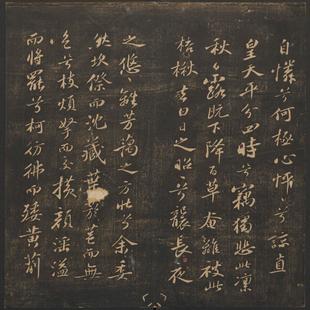 自憐兮何極心怦兮諒直
皇天平分四時兮竊獨悲此凜
秋〻露既下降百草奄離披此
梧楸去白日之昭兮襲長夜
之悠離芳藹之方壯兮余委
然坎傺而沈藏葉菸芑而無
色兮枝煩挐而交橫顏淫溢
而將罷兮柯彷彿而矮黃萷